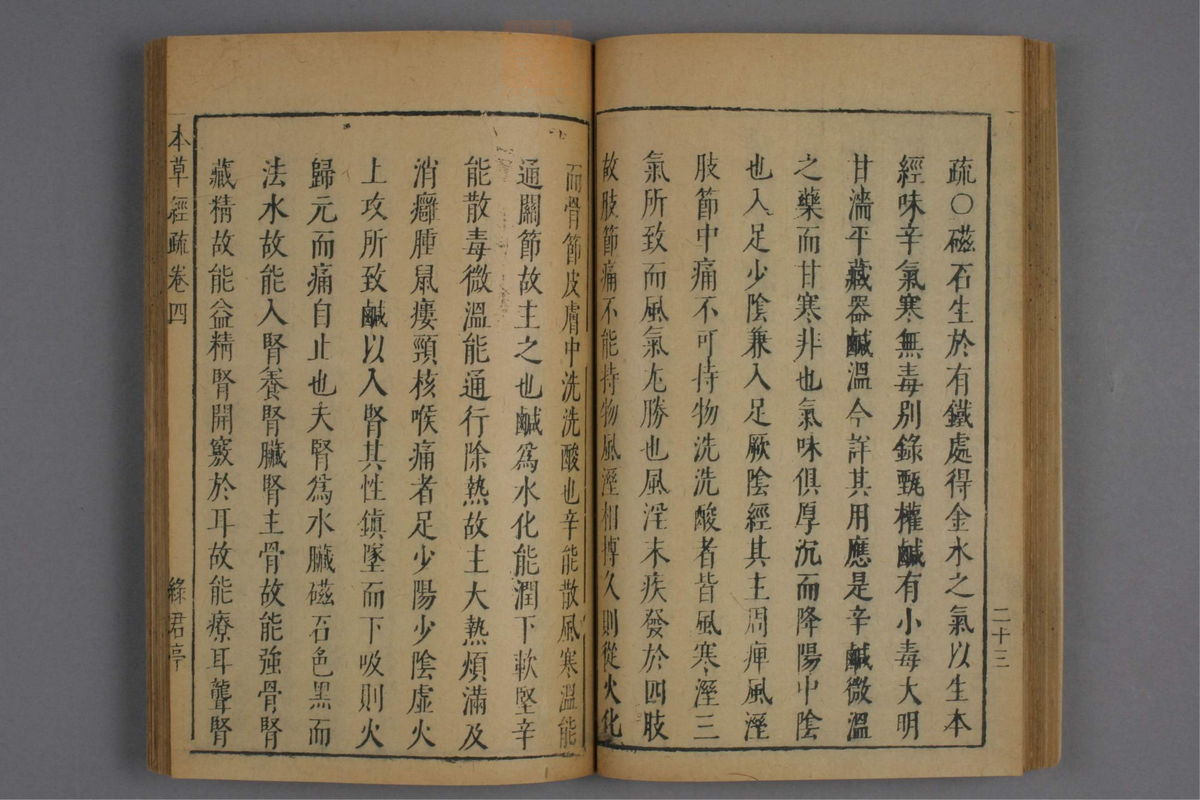 二十三
疏○磁石生於有鐵處得金水之氣以生本
經味辛氣寒無毒別錄甄權鹹有小毒大明
甘濇平藏器鹹溫今詳其用應是辛鹹微溫
之藥而甘寒非也氣味俱厚沉而降陽中陰
也入足少陰兼入足厥陰經其主周痺風溼
肢節中痛不可持物洗洗酸者皆風寒溼三
氣所致而風氣尤勝也風淫末疾發於四肢
故肢節痛不能持物風溼相搏久則從火化
而骨節皮膚中洗洗酸也辛能散風寒溫能
通關節故主之也鹹爲水化能潤下軟堅辛
能散毒微溫能通行除熱故主大熱煩滿及
消癰腫鼠瘻頸核喉痛者足少陽少陰虛火
上攻所致鹹以入腎其性鎮墜而下吸則火
歸元而痛自止也夫腎爲水臟磁石色黑而
法水故能入腎養腎臟腎主骨故能強骨腎
藏精故能益精腎開竅於耳故能療耳聾腎
本草經疏卷四
綠君亭